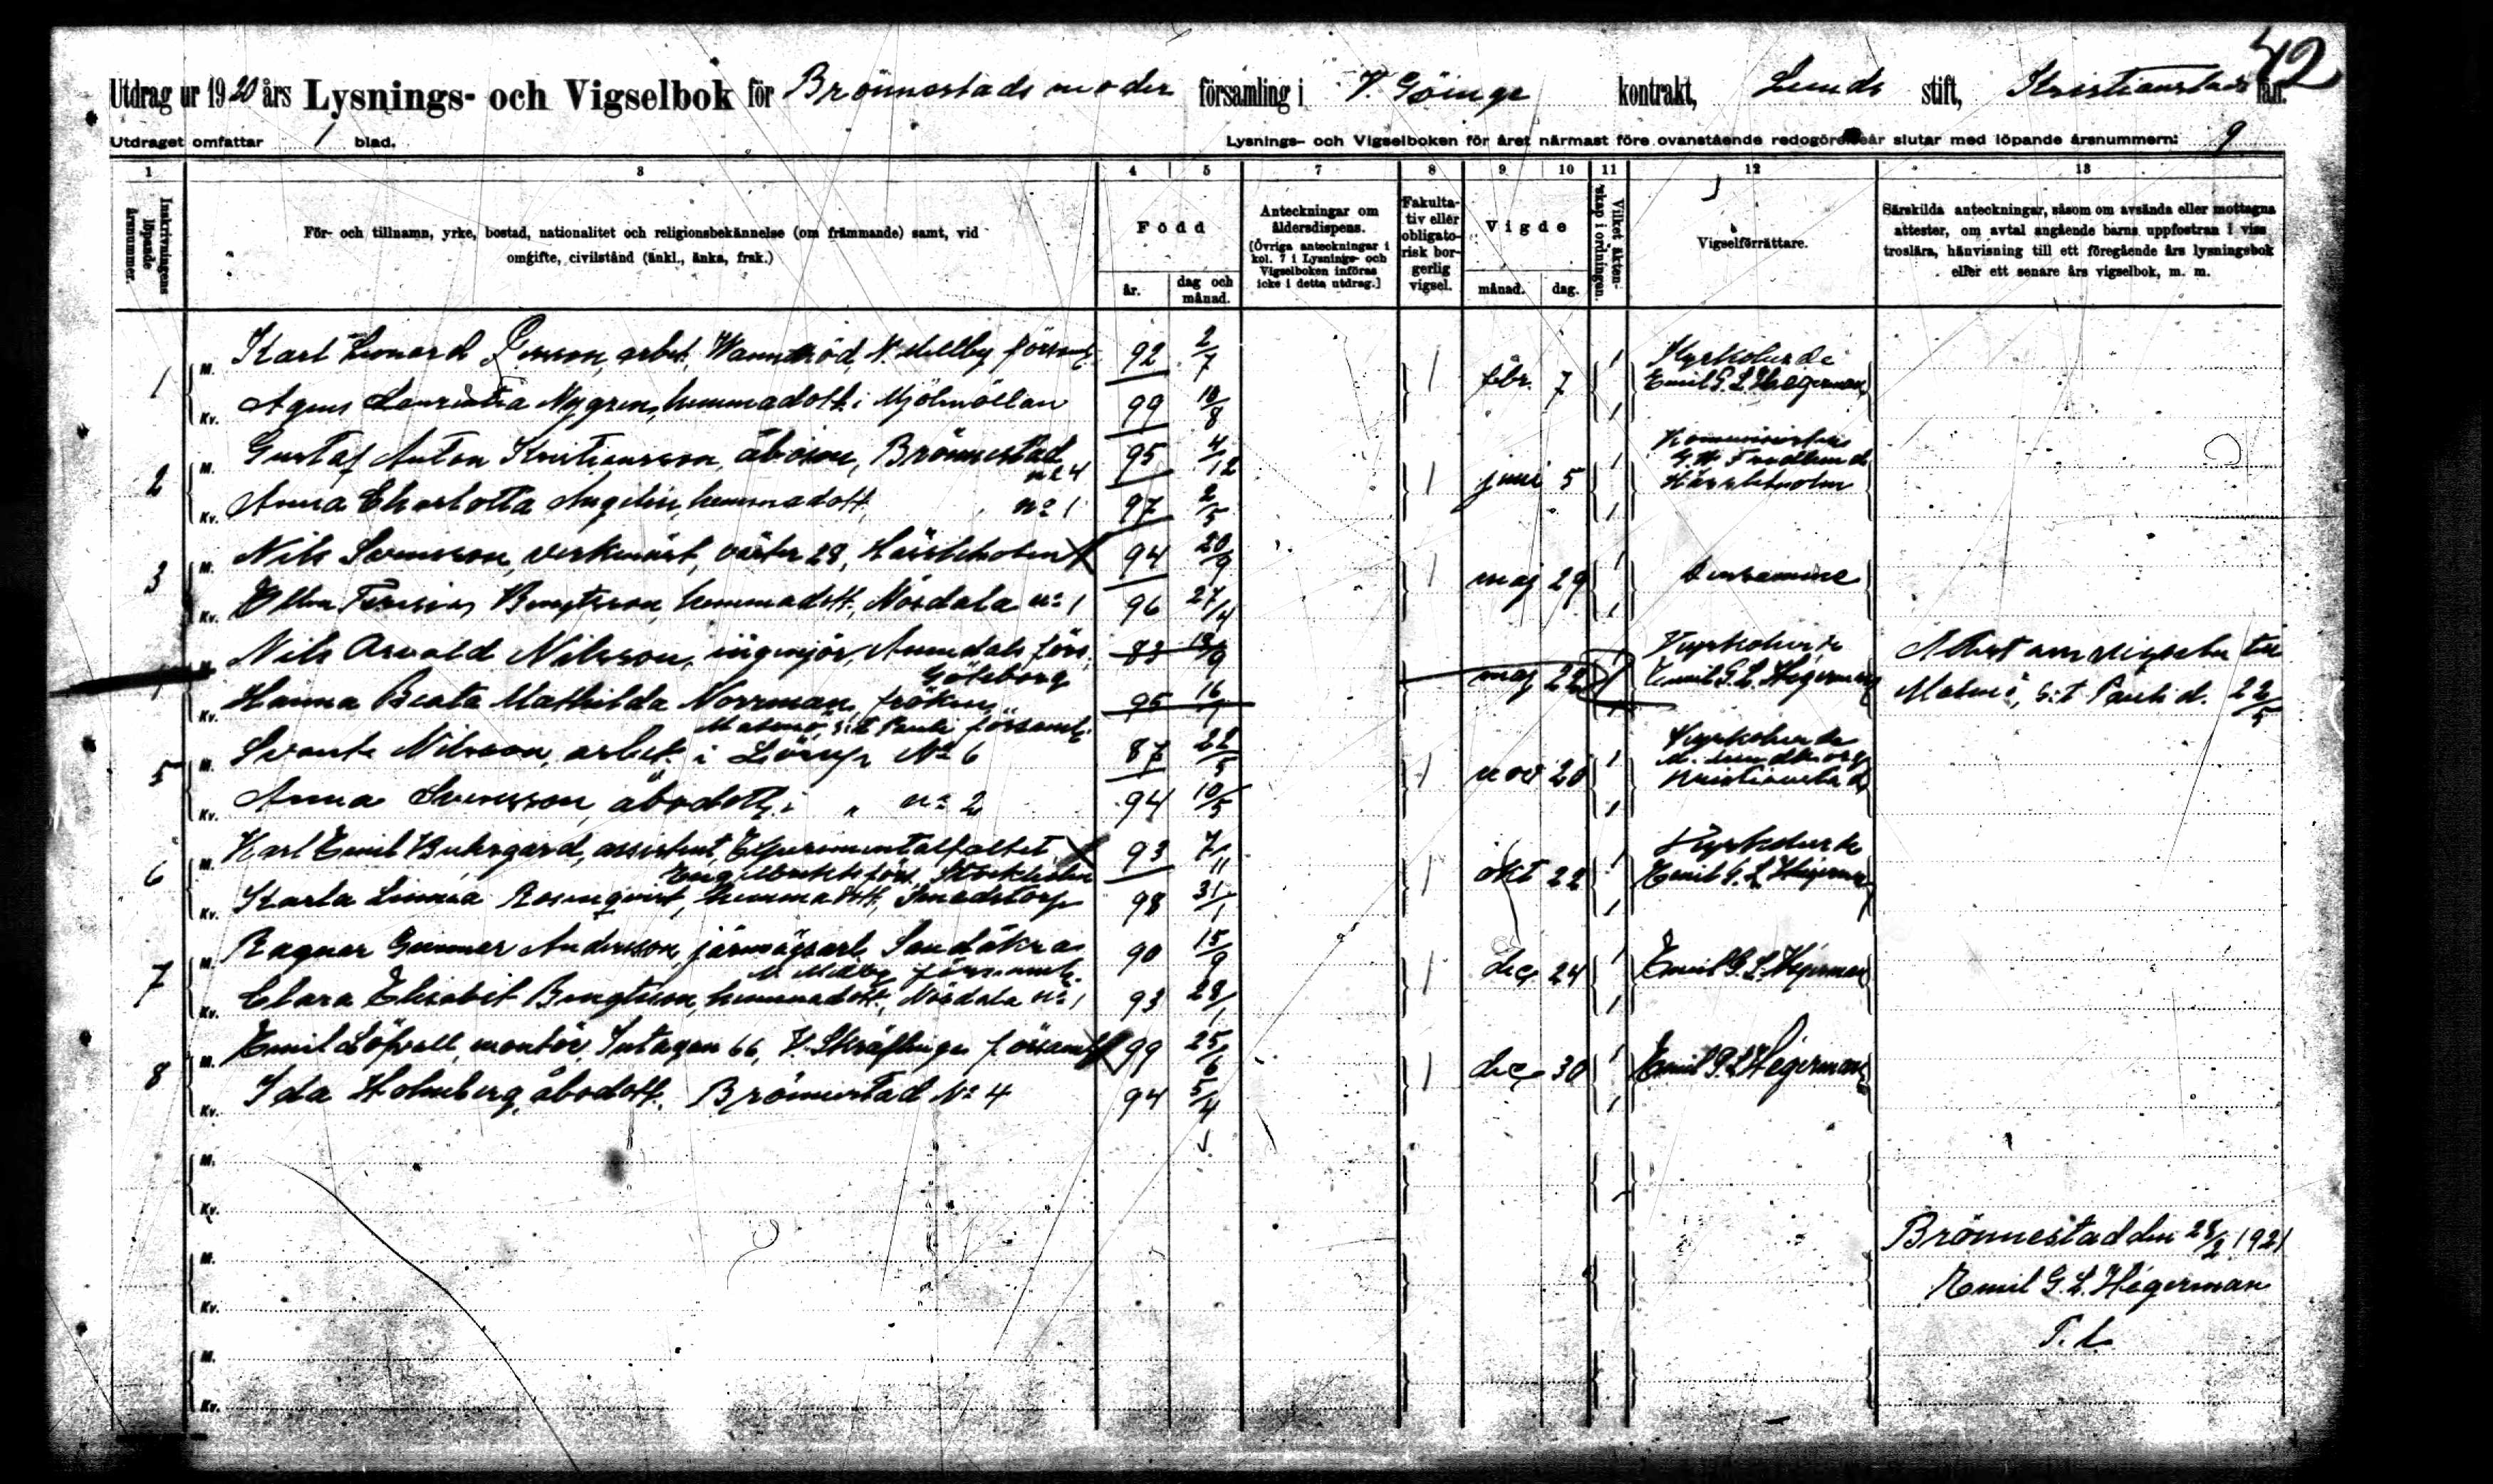 42
Utdrag ur 1920 års Lysnings- och Vigselbok för Brönnestads moder församling i V. Göinge kontrakt, Lunds stift, Kristianstads län.
Utdraget omfattar 1 blad. Lysnings- och Vigselboken för året närmast före ovanstående redogörelseår slutar med löpande årsnummern: 9
1 3 4 5 7 8 9 10 11 12 13
Inskrivningens löpande årsnummer.
För- och tillnamn, yrke, bostad, nationalitet och religionsbekännelse (om främmande) samt, vid
omgifte, civilstånd (änkl., änka, frsk.)
Född
år. dag och månad.
Anteckningar om åldersdispens.
[Övriga anteckningar i kol. 7 i Lysnings- och Vigselboken införas icke i detta utdrag.]
Fakultativ eller obligatorisk borgerlig vigsel.
Vigde
månad. dag.
Vilket äktenskap i ordningen.
Vigselförrättare.
Särskilda anteckningar, såsom om avsända eller mottagna
attester, om avtal angående barns uppfostran i viss
troslära, hänvisning till ett föregående års lysningsbok
eller ett senare års vigselbok, m. m.
1 M. Karl Leonard Persson, arbet., N. Mellby förs. 92 2/7
febr. 7 1 Kyrkoherde Emil G. L. Hégerman
Kv. Agnes Laurentia Nygren, hemmadott. i Mjölmöllan 99 18/8 1
2 M. Gustaf Anton Kristiansson, åboson, Brönnestad nº 4 95 4/12
juni 5 1 Komminister Hässleholm
Kv. Anna Charlotta Angelin, hemmadott. nº 1 97 2/5 1
3 M. Nils Svensson, verkmäst., väster 28, Hässleholm 94 20/9
maj 29 1 Densamme
Kv. Bengtsson, hemmadott., Nösdala nº 1 96 27/4 1
4 M. Nils Arvald Nilsson, ingenjör, förs. Göteborg 83
maj 22 1 Kyrkoherde Emil G. L. Hégerman
Attest om vigseln till
Malmö, S:t Pauli d. 22/5
Kv. Hanna Beata Mathilda Norrman, fröken, Malmö, S:t Pauli församl. 95
5 M. Svante Nilsson, arbet. i Lörup Nº 6 87 22/5
nov 20 1 Kyrkoherde Kristianstad
Kv. Anna Svensson, åbodott. i " nº 2 94 10/5 1
6 M. Karl Emil Buhrgard, assistent, Experimentalfältet, Engelbrekts förs. Stockholm 93 7/11
okt 22 1 Kyrkoherde Emil G. L. Hégerman
Kv. Karla Linnéa Rosenqvist, hemmadott., Smedstorp 98 31/1 1
7 M. Ragnar Gunnar Andersson, järnvägsarb. Sandåkra N. Mellby församl. 90 15/9
dec 24 1 Emil G. L. Hégerman
Kv. Clara Elisabet Bengtsson, hemmadott., Nösdala nº 1 93 28/1 1
8 M. Emil Löfvall, montör, Intagan 66, V. Skräflinge församl. 99 25/6
dec 30 1 Emil G. L. Hégerman
Kv. Ida Holmberg, åbodott., Brönnestad Nº 4 94 5/4 1
M.
Kv.
M.
Brönnestad den 28/2 1921
Kv.
Emil G. L. Hégerman
M.
Kv.